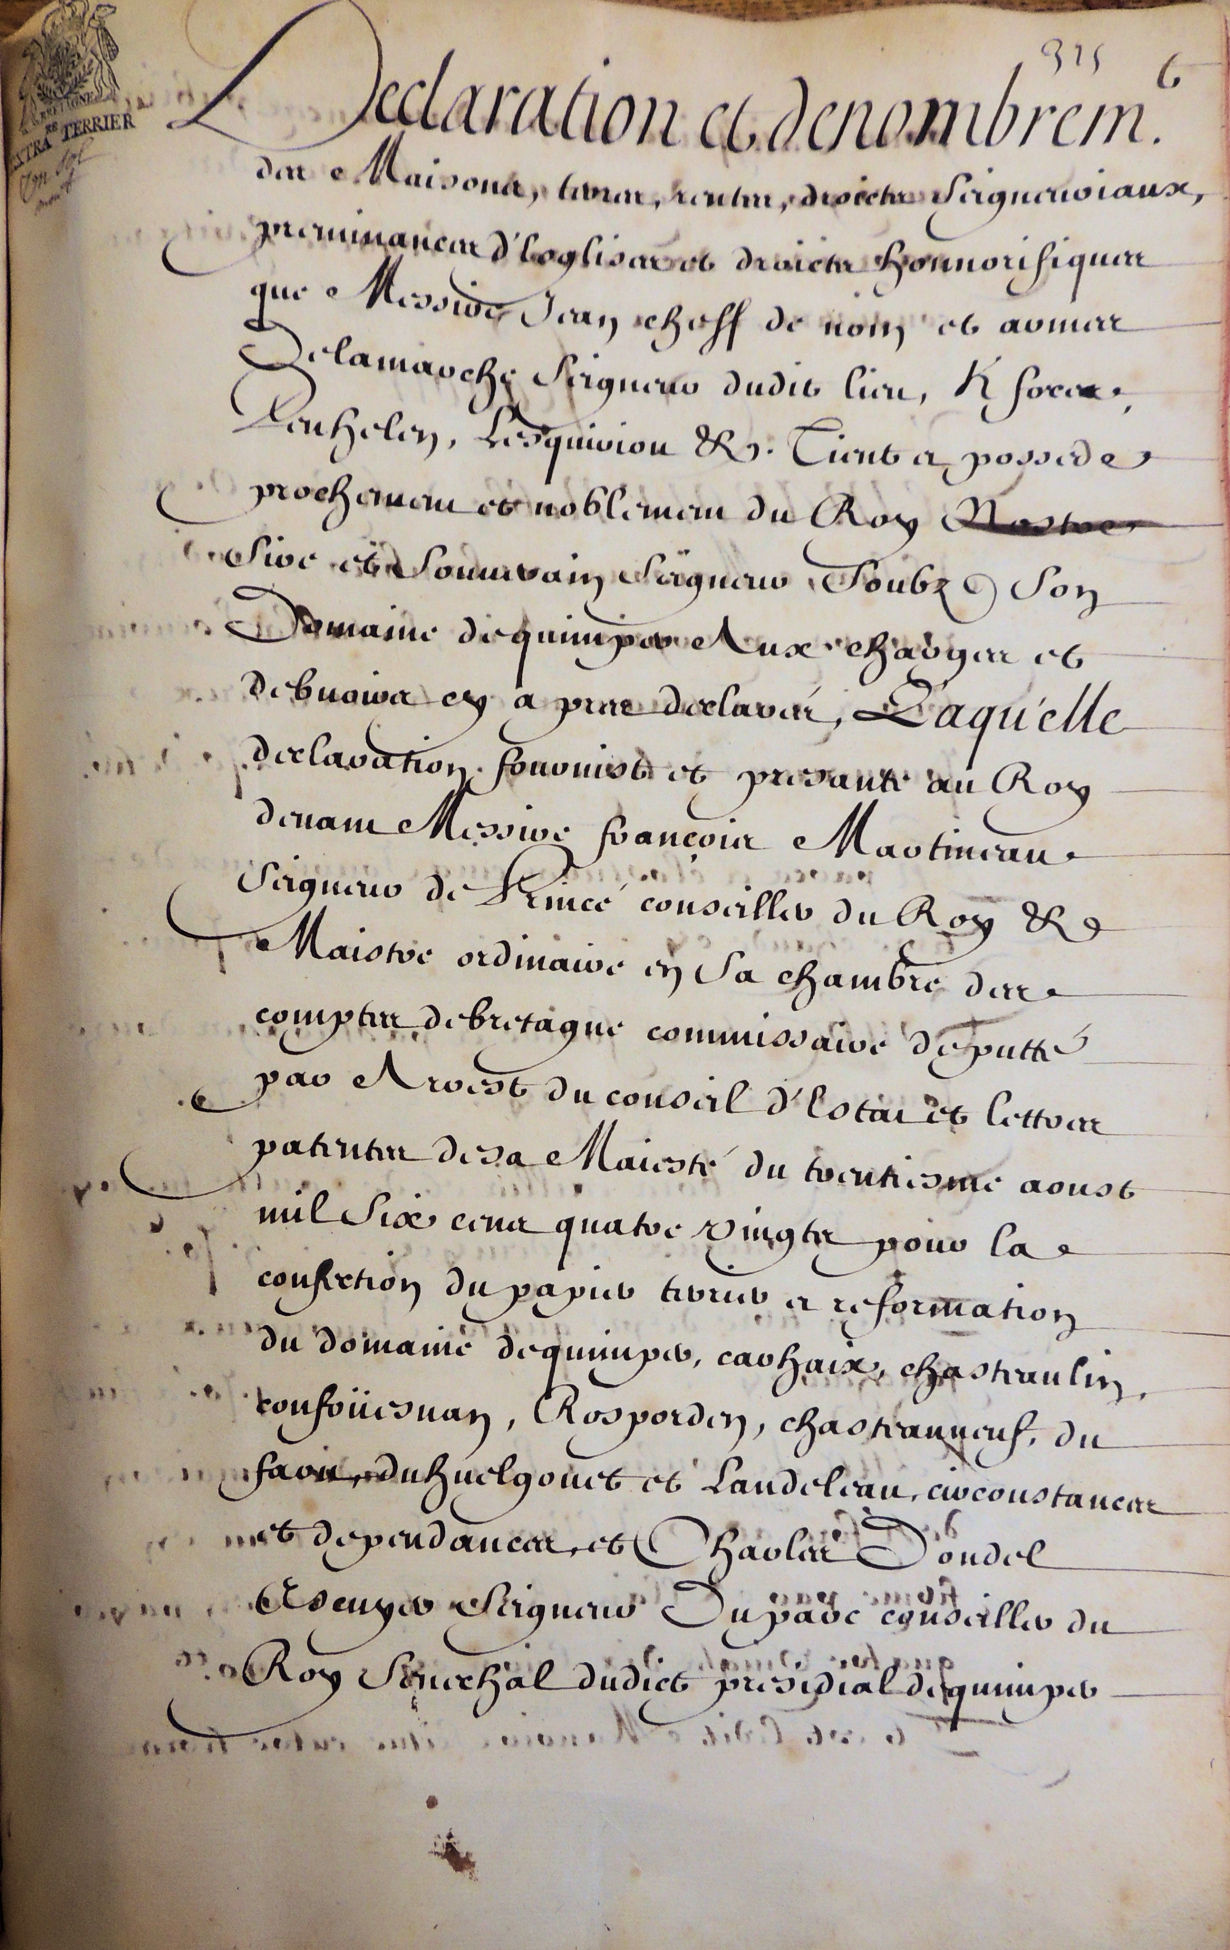 315
BRETAGNE
EXTRA TERRIER
Declaration et denombrem.t
des Maisons, terres, rentes, droicts Seigneuriaux,
preminances d'Esglises et droicts honnorifiques
que Messire Jean cheff de nom et armes
Delamarche Seigneur dudit lieu, K forces,
Penhelen, Lesquiriou &c. Tient et possede
prochement et noblement du Roy Nostre
Sire et Souverain Seigneur Soubz Son
Domaine de quimper Aux charges et
debvoirs cy apres declarés, Laquelle
declaration fournist et presante au Roy
devant Messire françois Martineau
Seigneur de Princé conseiller du Roy &
Maistre ordinaire en Sa chambre des
comptes de bretagne commissaire deputté
par Arrest du conseil d'Estat et lettres
patentes de sa Maiesté du trentiesme aoust
mil Six cens quatre vingts pour la
confection du papier terrier et reformation
du domaine de quimper, carhaix, chasteaulin,
confoüesnan, Rosporden, chasteauneuf, du
faou, du huelgouet et Landeleau, circonstances
et dependances, et Charles Doudel
Escuyer Seigneur Du parc conseiller du
Roy Senechal dudict presidial de quimper